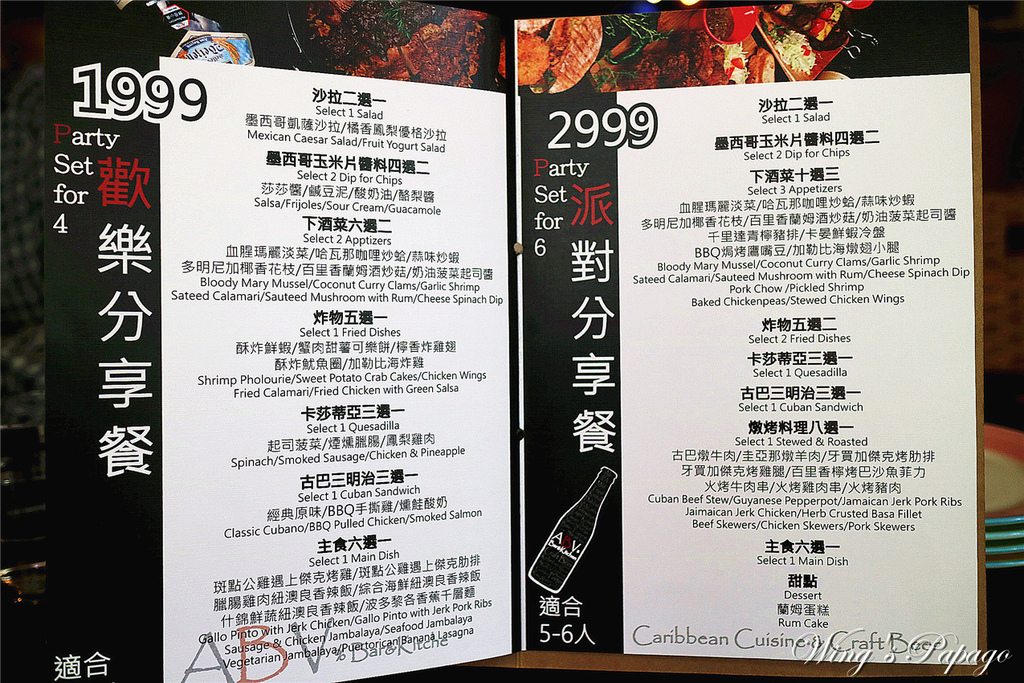 1999
Party
Set
for
4
歡樂分享餐
適合
沙拉二選一
Select 1 Salad
墨西哥凱薩沙拉/橘香鳳梨優格沙拉
Mexican Caesar Salad/Fruit Yogurt Salad
墨西哥玉米片醬料四選二
Select 2 Dip for Chips
莎莎醬/鹹豆泥/酸奶油/酪梨醬
Salsa/Frijoles/Sour Cream/Guacamole
下酒菜六選二
Select 2 Apptizers
血腥瑪麗淡菜/哈瓦那咖哩炒蛤/蒜味炒蝦
多明尼加椰香花枝/百里香蘭姆酒炒菇/奶油菠菜起司醬
Bloody Mary Mussel/Coconut Curry Clams/Garlic Shrimp
Sateed Calamari/Sauteed Mushroom with Rum/Cheese Spinach Dip
炸物五選一
Select 1 Fried Dishes
酥炸鮮蝦/蟹肉甜薯可樂餅/檸香炸雞翅
酥炸魷魚圈/加勒比海炸雞
Shrimp Pholourie/Sweet Potato Crab Cakes/Chicken Wings
Fried Calamari/Fried Chicken with Green Salsa
卡莎蒂亞三選一
Select 1 Quesadilla
起司菠菜/煙燻臘腸/鳳梨雞肉
Spinach/Smoked Sausage/Chicken & Pineapple
古巴三明治三選一
Select 1 Cuban Sandwich
經典原味/BBQ手撕雞/燻鮭酸奶
Classic Cubano/BBQ Pulled Chicken/Smoked Salmon
主食六選一
Select 1 Main Dish
斑點公雞遇上傑克烤雞/斑點公雞遇上傑克肋排
臘腸雞肉紐澳良香辣飯/綜合海鮮紐澳良香辣飯
什錦鮮蔬紐澳良香辣飯/波多黎各香蕉千層麵
Gallo Pinto with Jerk Chicken/Gallo Pinto with Jerk Pork Ribs
Sausage & Chicken Jambalaya/Seafood Jambalaya
Vegetarian Jambalaya/Puertorican Banana Lasagna
ABV
Bar&Kitche
2999
Party
Set
for
6
派對分享餐
ABV
Bar&Kitchen
適合
5-6人
沙拉二選一
Select 1 Salad
墨西哥玉米片醬料四選二
Select 2 Dip for Chips
下酒菜十選三
Select 3 Appetizers
血腥瑪麗淡菜/哈瓦那咖哩炒蛤/蒜味炒蝦
多明尼加椰香花枝/百里香蘭姆酒炒菇/奶油菠菜起司醬
千里達青檸豬排/卡晏鮮蝦冷盤
BBQ焗烤鷹嘴豆/加勒比海燉翅小腿
Bloody Mary Mussel/Coconut Curry Clams/Garlic Shrimp
Sateed Calamari/Sauteed Mushroom with Rum/Cheese Spinach Dip
Pork Chow /Pickled Shrimp
Baked Chickenpeas/Stewed Chicken Wings
炸物五選二
Select 2 Fried Dishes
卡莎蒂亞三選一
Select 1 Quesadilla
古巴三明治三選一
Select 1 Cuban Sandwich
燉烤料理八選一
Select 1 Stewed & Roasted
古巴燉牛肉/圭亞那燉羊肉/牙買加傑克烤肋排
牙買加傑克烤雞腿/百里香檸烤巴沙魚菲力
火烤牛肉串/火烤雞肉串/火烤豬肉
Cuban Beef Stew/Guyanese Pepperpot/Jamaican Jerk Pork Ribs
Jaimaican Jerk Chicken/Herb Crusted Basa Fillet
Beef Skewers/Chicken Skewers/Pork Skewers
主食六選一
Select 1 Main Dish
甜點
Dessert
蘭姆蛋糕
Rum Cake
Caribbean Cuisine & Craft Beer
Ming's Papago